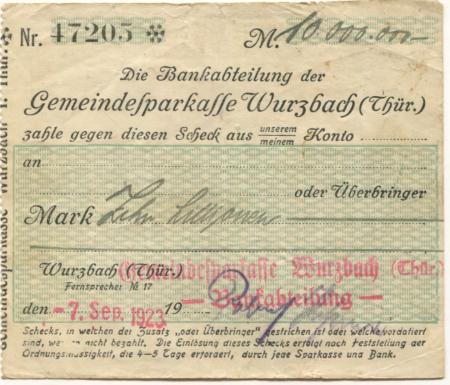 Nr. 47205 M. 10.000.000-
Die Bankabteilung der
Gemeindesparkasse Wurzbach (Thür.)
zahle gegen diesen Scheck aus unserem meinem Konto
an
oder Überbringer
Mark Zehn Millionen
Gemeindesparkasse Wurzbach (Thür.)
Wurzbach (Thür.)
Fernsprecher № 17
— Bankabteilung —
den - 7. Sep. 1923 19
Schecks, in welchen der Zusatz „oder Überbringer" gestrichen ist oder welche vordatiert
sind, werden nicht bezahlt. Die Einlösung dieses Schecks erfolgt nach Feststellung der
Ordnungsmässigkeit, die 4—5 Tage erfordert, durch jede Sparkasse und Bank.
Gemeindesparkasse Wurzbach i. Thür.